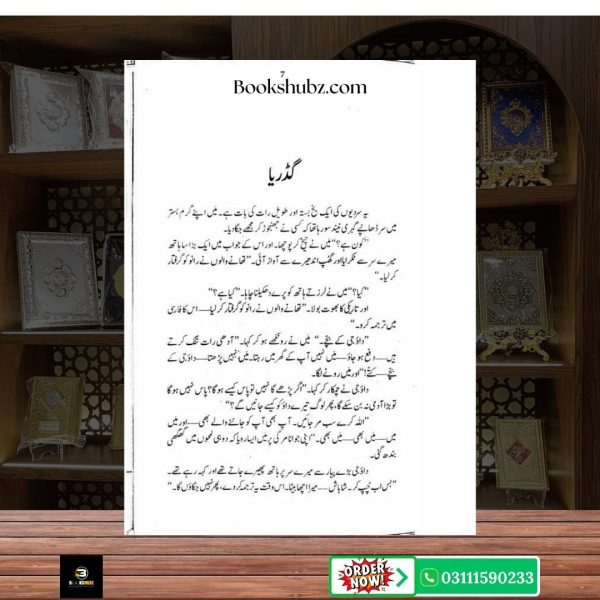 7
Bookshubz.com
گڈریا
یہ سردیوں کی ایک یخ بستہ اور طویل رات کی بات ہے۔ میں اپنے گرم بستر
میں سر ڈھانپے گہری نیند سو رہا تھا کہ کسی نے جھنجوڑ کر مجھے جگا دیا۔
"کون ہے؟" میں نے چیخ کر پوچھا۔ اور اس کے جواب میں ایک بڑا سا ہاتھ
میرے سر سے ٹکرایا اور گھپ اندھیرے سے آواز آئی۔ "تھانے والوں نے رانو کو گرفتار
کر لیا۔"
"کیا؟" میں نے لرزتے ہاتھ کو پرے دھکیلنا چاہا۔ "کیا ہے؟"
اور تاریکی کا بھوت بولا۔ "تھانے والوں نے رانو کو گرفتار کر لیا— اس کا فارسی
میں ترجمہ کرو۔"
"داؤ جی کے بچے۔" میں نے رونکھے ہو کر کہا۔ "آدھی رات تنگ کرتے
ہیں—دفع ہو جاؤ—میں نہیں آپ کے گھر میں رہتا۔ میں نہیں پڑھتا—داؤ جی کے
بچے—کتے!" اور میں رونے لگا۔
داؤ جی نے چمکار کر کہا۔ "اگر پڑھے گا نہیں تو پاس کیسے ہو گا؟ پاس نہیں ہو گا
تو بڑا آدمی نہ بن سکے گا، پھر لوگ تیرے داؤ کو کیسے جانیں گے؟"
"اللہ کرے سب مر جائیں۔ آپ بھی آپ کو جاننے والے بھی—اور میں
میں—میں بھی—میں بھی۔" اپنی جوانامرگی پر میں ایسا رویا کہ دو ہی لمحوں میں گھگھی
بندھ گئی۔
داؤ جی بڑے پیار سے میرے سر پر ہاتھ پھیرے جاتے تھے اور کہہ رہے تھے۔
"بس اب چپ کر۔ شاباش —— میرا اچھا بیٹا۔ اس وقت یہ ترجمہ کر دے، پھر نہیں جگاؤں گا۔"
BOOKSHUBZ
ORDER
NOW!
03111590233